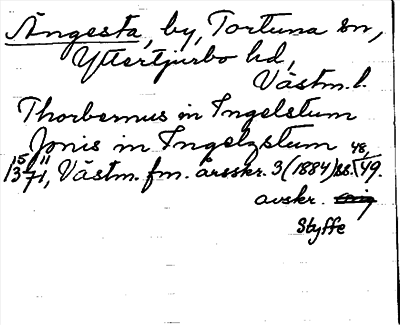 Ängesta, by, Tortuna sn,
Yttertjurbo hd,
Västm. l.
Thorbernus in Ingelstum
Jonis in Ingelzstum
15/11 1371, Västm. fm. årsskr. 3 (1884) ss. 48, 49.
avskr.
Styffe